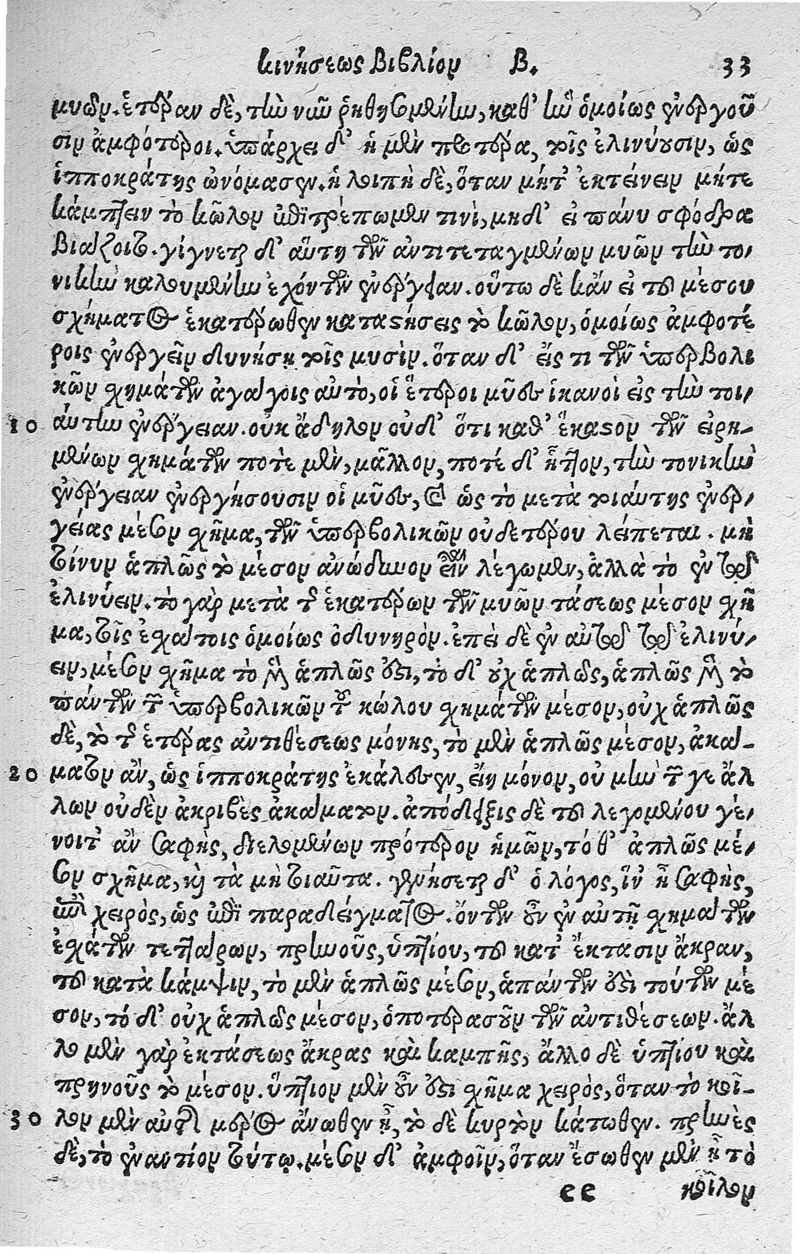 κινήσεως Βιβλίον Β. 33
μυῶν. ἑτέραν δὲ, τὴν νῦν ῥηθησομένην, καθ' ἣν ὁμοίως ἐνεργοῦ
σιν ἀμφότεροι. ὑπάρχει δ' ἡ μὲν προτέρα, τοῖς ἐλινύουσιν, ὡς
ἱπποκράτης ὠνόμασεν. ἡ λοιπὴ δὲ, ὅταν μήτ' ἐκτείνειν μήτε
κάμπτειν τὸ κῶλον ἐπιτρέπωμεν τινὶ, μηδ' εἰ πάνυ σφόδρα
βιάζοιτο. γίγνεται δ' αὕτη τῶν ἀντιτεταγμένων μυῶν τὴν το,
νικὴν καλουμένην ἐχόντων ἐνέργειαν. οὕτω δὲ κἂν εἰ τοῦ μέσου
σχήματος ἑκατέρωθεν καταστήσεις τὸ κῶλον, ὁμοίως ἀμφοτέ
ροις ἐνεργεῖν δυνήσῃ τοῖς μυσὶν. ὅταν δ' εἴς τι τῶν ὑπερβολι
κῶν σχημάτων ἀγάγοις αὐτὸ, οἱ ἕτεροι μῦες ἱκανοὶ εἰς τὴν τοι,
10 αύτην ἐνέργειαν. οὐκ ἄδηλον οὐδ' ὅτι καθ' ἕκαστον τῶν εἰρη-
μένων σχημάτων ποτὲ μὲν, μᾶλλον, ποτέ δ' ἧττον, τὴν τονικὴν
ἐνέργειαν ἐνεργήσουσιν οἱ μῦες, καὶ ὡς τὸ μετὰ τοιαύτης ἐνερ,
γείας μέσον σχῆμα, τῶν ὑπερβολικῶν οὐδετέρου λείπεται. μὴ
τοίνυν ἁπλῶς τὸ μέσον ἀνώδυνον εἶναι λέγωμεν, ἀλλὰ τὸ ἐν τῷ
ἐλινύειν. τὸ γὰρ μετὰ τῆς ἑκατέρων τῶν μυῶν τάσεως μέσον σχῆ
μα, τοῖς ἐσχάτοις ὁμοίως ὀδυνηρὸν. ἐπεὶ δὲ ἐν αὐτῷ τῷ ἐλινύ,
ειν, μέσον σχῆμα τὸ μὲν ἁπλῶς ἐστι, τὸ δ' οὐχ ἁπλῶς, ἁπλῶς μὲν τὸ
πάντων τῶν ὑπερβολικῶν τοῦ κώλου σχημάτων μέσον, οὐχ ἁπλῶς
δὲ, τὸ τῆς ἑτέρας ἀντιθέσεως μόνης, τὸ μὲν ἁπλῶς μέσον, ἀκά-
20 ματον ἂν, ὡς ἱπποκράτης ἐκάλεσεν, εἴη μόνον, οὐ μὴν τῶν γε ἄλ
λων οὐδὲν ἀκριβὲς ἀκάματον. ἀπόδειξις δὲ τοῦ λεγομένου γέ,
νοιτ' ἂν σαφὴς, διελομένων πρότερον ἡμῶν, τό θ' ἁπλῶς μέ,
σον σχῆμα, καὶ τὰ μὴ τοιαῦτα. γενήσεται δ' ὁ λόγος, ἵν' ᾖ σαφὴς,
ἐπὶ χειρὸς, ὡς ἐπὶ παραδείγματος. ὄντων οὖν ἐν αὐτῇ σχημάτων
ἐσχάτων τεττάρων, πρηνοῦς, ὑπτίου, τοῦ κατ' ἔκτασιν ἄκραν,
τοῦ κατὰ κάμψιν, τὸ μὲν ἁπλῶς μέσον, ἁπάντων ἐστὶ τούτων μέ
σον, τό δ' οὐχ ἁπλῶς μέσον, ὁποτερασοῦν τῶν ἀντιθέσεων. ἄλ
λο μὲν γὰρ ἐκτάσεως ἄκρας καὶ καμπῆς, ἄλλο δὲ ὑπτίου καὶ
πρηνοῦς τὸ μέσον. ὕπτιον μὲν οὖν ἐστι σχῆμα χειρὸς, ὅταν τὸ κοῖ-
30 λον μὲν αὐτῆς μέρος ἄνωθεν ᾖ, τὸ δὲ κυρτὸν κάτωθεν. πρηνὲς
δὲ, τὸ ἐναντίον τούτῳ. μέσον δ' ἀμφοῖν, ὅταν ἔσωθεν μὲν ᾖ τὸ
ee κοῖλον